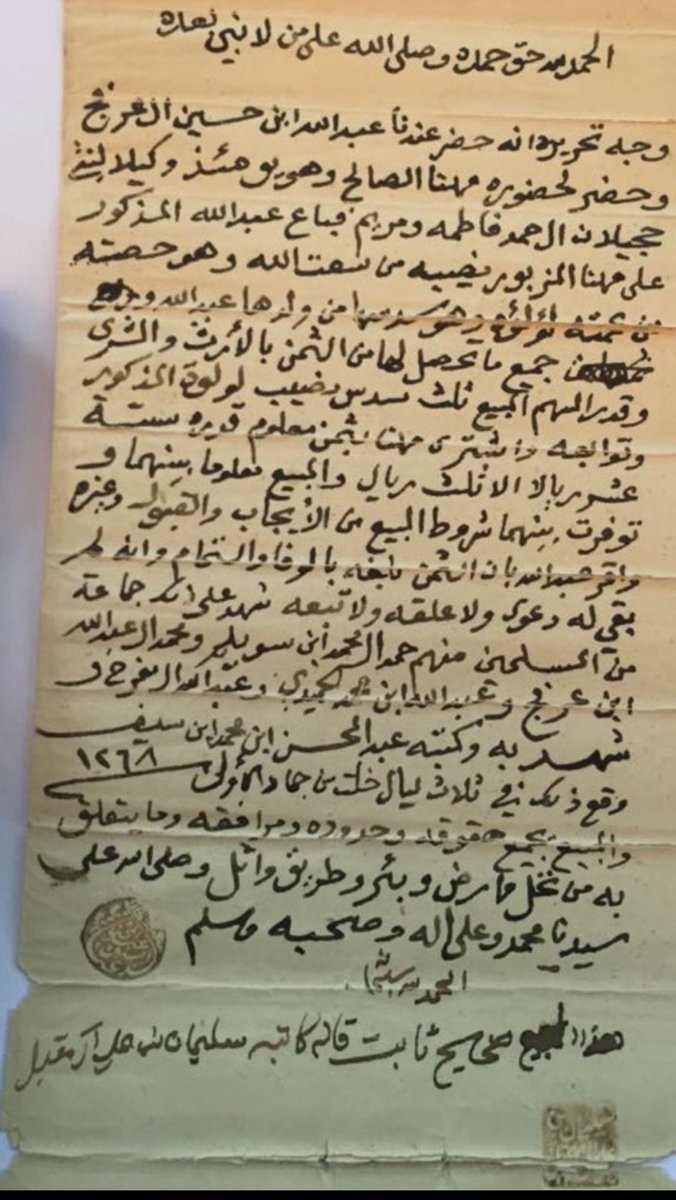 الحمد لله حق حمده وصلى الله على من لا نبي بعده
وجه تحريره انه حضر عندنا عبدالله ابن حسين ال عرفج
وحضر لحضوره مهنا الصالح وهو يومئذ وكيلا لبنتي
حجيلان ال حمد فاطمه ومريم فباع عبدالله المذكور
على مهنا المزبور نصيبه من سعت الله وهو حصته
من عمته لؤلؤه وهو من ولدها عبدالله
جميع ما تحصل لها من الثمن بالأرث والشرى
وقدير السهم المبيع ثلث سدس نصيب لولوة المذكور
وتوابعه واشترى مهنا بثمن معلوم قدره ستة
عشر ريالا الا ثلث ريال والمبيع معلوما بينهما و
توفرت بينهما شروط المبيع من الأيجاب والقبول وغيره
واقر عبدالله بان الثمن بلغه بالوفا والتمام وانه لم
يبقى له دعوى ولا علقه ولا تبعه شهد على ذلك جماعة
من المسلمين منهم حمد المحمد ابن سويلم ومحمد ال عبدالله
ابن عرفج وعبدالله ابن محمد وعبدالله ال مفرح و
شهد به وكتبه عبدالمحسن ابن محمد ابن سيف
وقع ذلك في ثلاث ليال خلت من جماد الأولى ١٢٦٨
والمبيع بجميع حقوقه وحدوده ومرافقه وما يتعلق
به من نخل وارض وبئر وطريق واثل وصلى الله على
سيدنا محمد وعلى اله وصحبه وسلم
الحمد لله
هذا المبيع صحيح ثابت قاله كاتبه سليمان بن علي ال مقبل